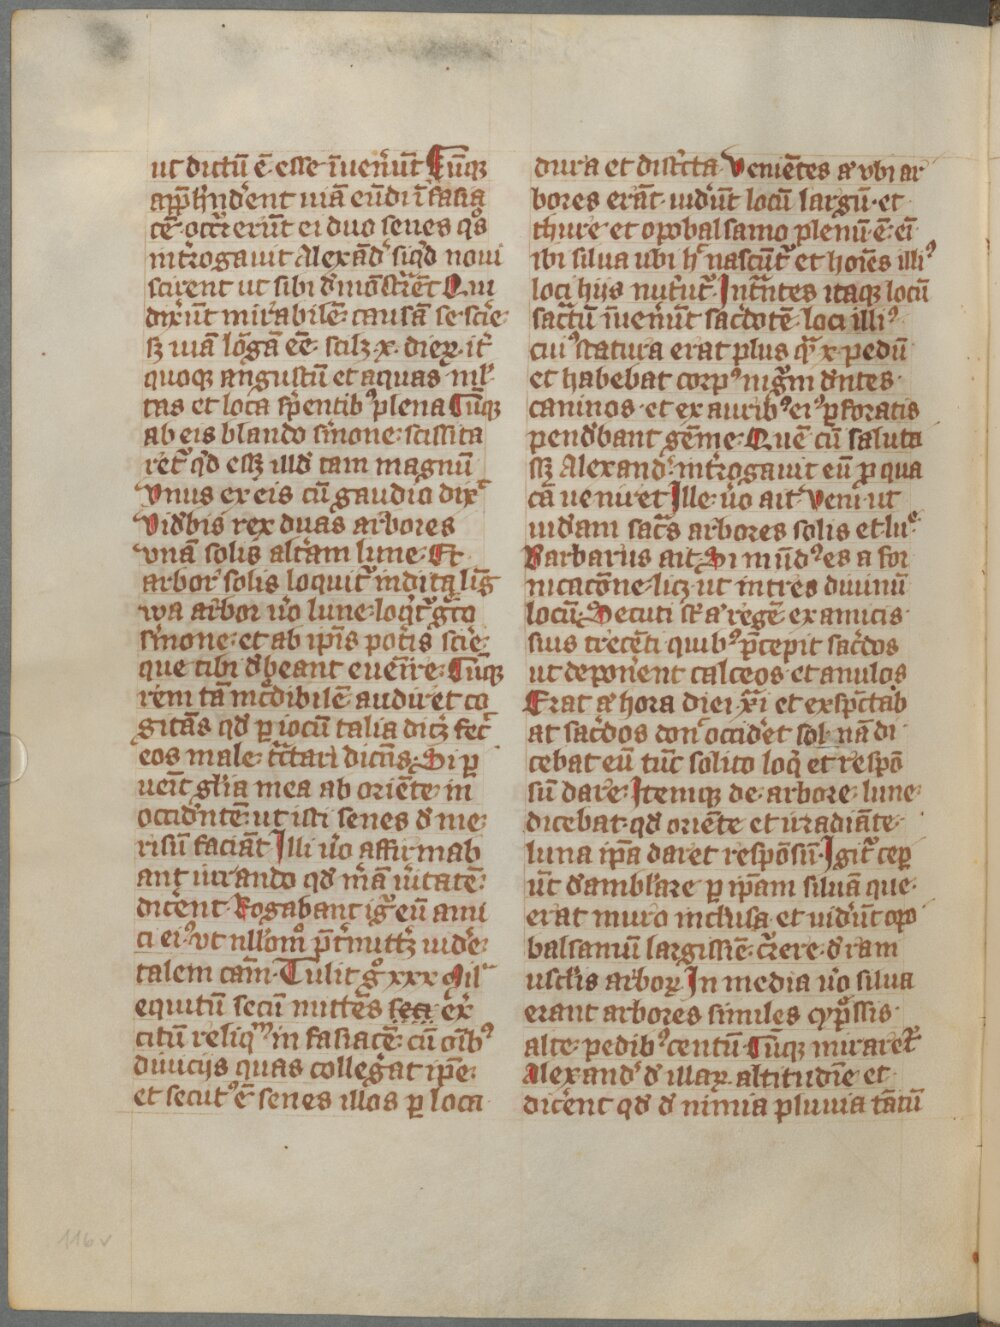 ut dictū ē esse īuen̄ūt Cūqꝫ
app̄hnd'ent uiā eūdi ī fasia
cē occ̄rerūt ei duo senes qͦs
int̄rogauit Alexād' siqͥd noui
scirent ut sibi d'mōst̄rēt Qui
dix̄ūt mirabilē causā se scīe
sꝫ uiā lōgā eē scilꝫ x dieꝝ it̄
quoqꝫ angustū et aquas
tas et loca sp̄entibꝰ plena Cūqꝫ
ab eis blando s̄mone scissita
ret̄ qͥd essꝫ illd' tam magnū
Vnus ex eis cū gaudio dix̄
Vid'bis rex duas arbores
vnā solis alt̄am lune Et
arbor solis loquit̄ indica līg
wa arbor u̓o lune loqͥt̄ g̓co
s̄mone et ab ip̄is pot̓is scīe
que tibi d'beant euen̄re Cūqꝫ
rem tā inc̓dibilē audiret co
gitās qd' ꝑ iocū talia dic̄ꝫ fec̄
eos male t̄ctari dicēs Si ꝑ
uen̄t gl̓ia mea ab oriēte in
occid'ntē ut isti senes d' me
risū faciāt Illi u̓o affirmab
ant iurando qd' m̄ā u̓itatē
dic̓ent Rogabant ig̓ eū ami
ci eiꝰ vt nll'om° p̄t̓mitt̄ꝫ uid'e
talem cām Tulit gͦ xxx Mil̓
equitū secū mittēs ex̓
citū reliqᵐ in fasiacē cū oībꝰ
diuicijs quas colleg̓at ip̄e
et secutꝰ ē senes illos ꝑ loca
dura et dist̓cta Venientes aͬ vbi ar
bores erāt uid'ūt locū largū et
thure et opobalsamo plenū ē eī
ibi silua ubi h̓ nascūt̄ et hoīes illiꝰ
loci hijs nut̓ūt̄ Int̄ntes itaqꝫ locū
sac̄tū īuen̄ūt sac̓dotē loci illiꝰ
cuiꝰ statura erat plus qᵃ̄ x pedū
et habebat corpꝰ nig̓m d'ntes
caninos et ex auribꝰ eiꝰ ꝑforatis
pend'bant gēme Quē cū saluta
sꝫ Alexand' int̄rogauit eū ꝑ qua
cā ueniret Ille u̓o ait Veni ut
uid'am sac̄s arbores solis et luᵉ
Barbarus ait Si mūdꝰ es a for
nicacōne licꝫ ut intres diuinū
locū Secuti st̄ aͬ regē ex amicis
suis t̓ecēti quibꝰ p̄cepit sac̓dos
ut depon̓ent calceos et anulos
Erat aͬ hora diei xͥi et exspc̄tab
at sac̓dos don̓ occid'et sol nā di
cebat eū tūc solito loqͥ et respō
sū dare Itemqꝫ de arbore lune
dicebat qd' oriēte et irradiāte
luna ip̄a daret respōsū Igit̄ ceꝑ
ūt d'amblare ꝑ ip̄am siluā que
erat muro inclusa et uid'ūt opo
balsamū largissīe c̓rere d' ram
uscl'is arboꝝ In media u̓o silua
erant arbores similes cyp̓ssis
alte pedibꝰ centū Cūqꝫ miraret̄
Alexand' d' illaꝝ altitudīe et
dic̓ent qd' d' nimia pluuia tātū
116v